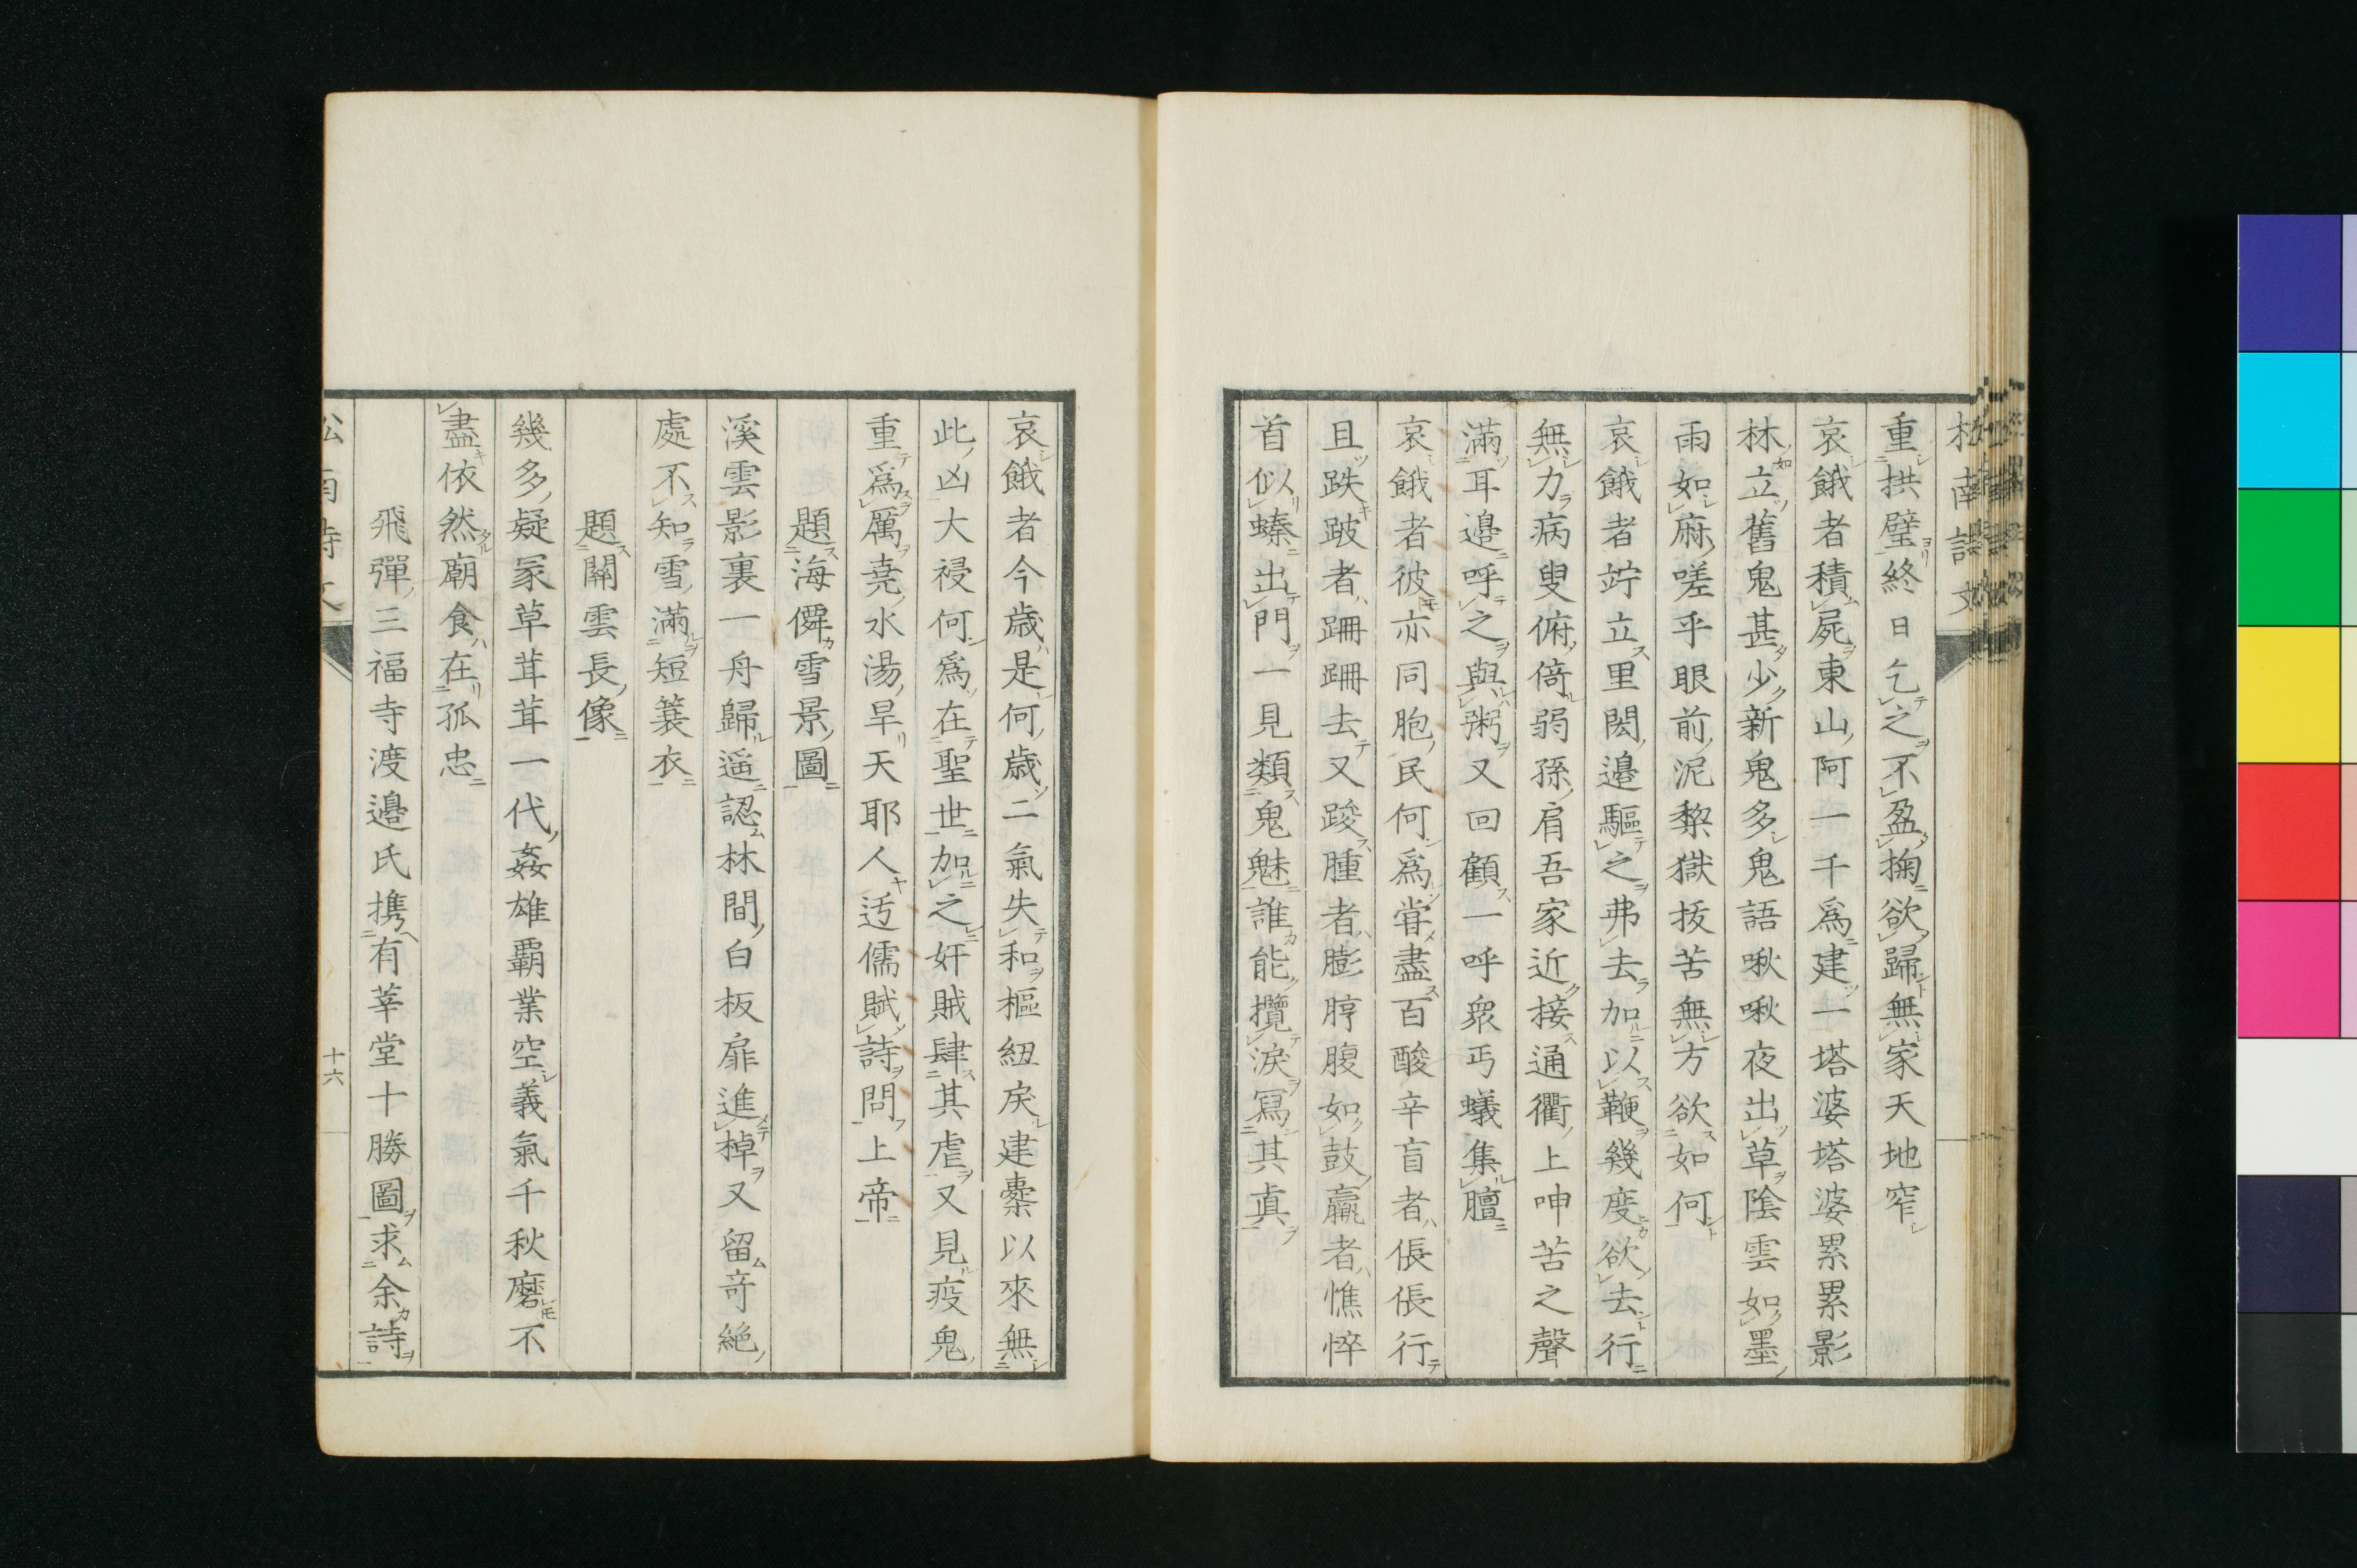 松南詩文
重拱璧終日乞之不盈掬欲歸無家天地窄
哀餓者積屍東山阿一千爲建一塔婆塔婆累累影
林立舊鬼甚少新鬼多鬼語啾啾夜出草陰雲如墨
雨如麻嗟乎眼前泥黎獄拔苦無方欲如何
哀餓者竚立里閎邉驅之弗去加以鞭幾度欲去行
無力病叟俯倚弱孫肩吾家近接通衢上呻苦之聲
滿耳邉呼之與粥又回顧一呼衆丐蟻集膻
哀餓者彼亦同胞民何爲甞盡百酸辛盲者倀倀行
且跌跛者跚跚去又踆腫者膨脝腹如鼓羸者憔悴
首似螓出門一見類鬼魅誰能攬淚冩其真
哀餓者今歳是何歳二氣失和樞紐戾建櫜以來無
此凶大祲何爲在聖世加之奸賊肆其虐又見疫鬼
重爲厲堯水湯旱天耶人迃儒賦詩問上帝
題海僊雪景圖
溪雲影裏一舟歸遥認林間白板扉進棹又留竒絶
處不知雪滿短簑衣
題關雲長像
幾多疑冢草茸茸一代姦雄覇業空義氣千秋磨不
盡依然廟食在孤忠
飛彈三福寺渡邉氏携有莘堂十勝圖求余詩
松南詩文
十六